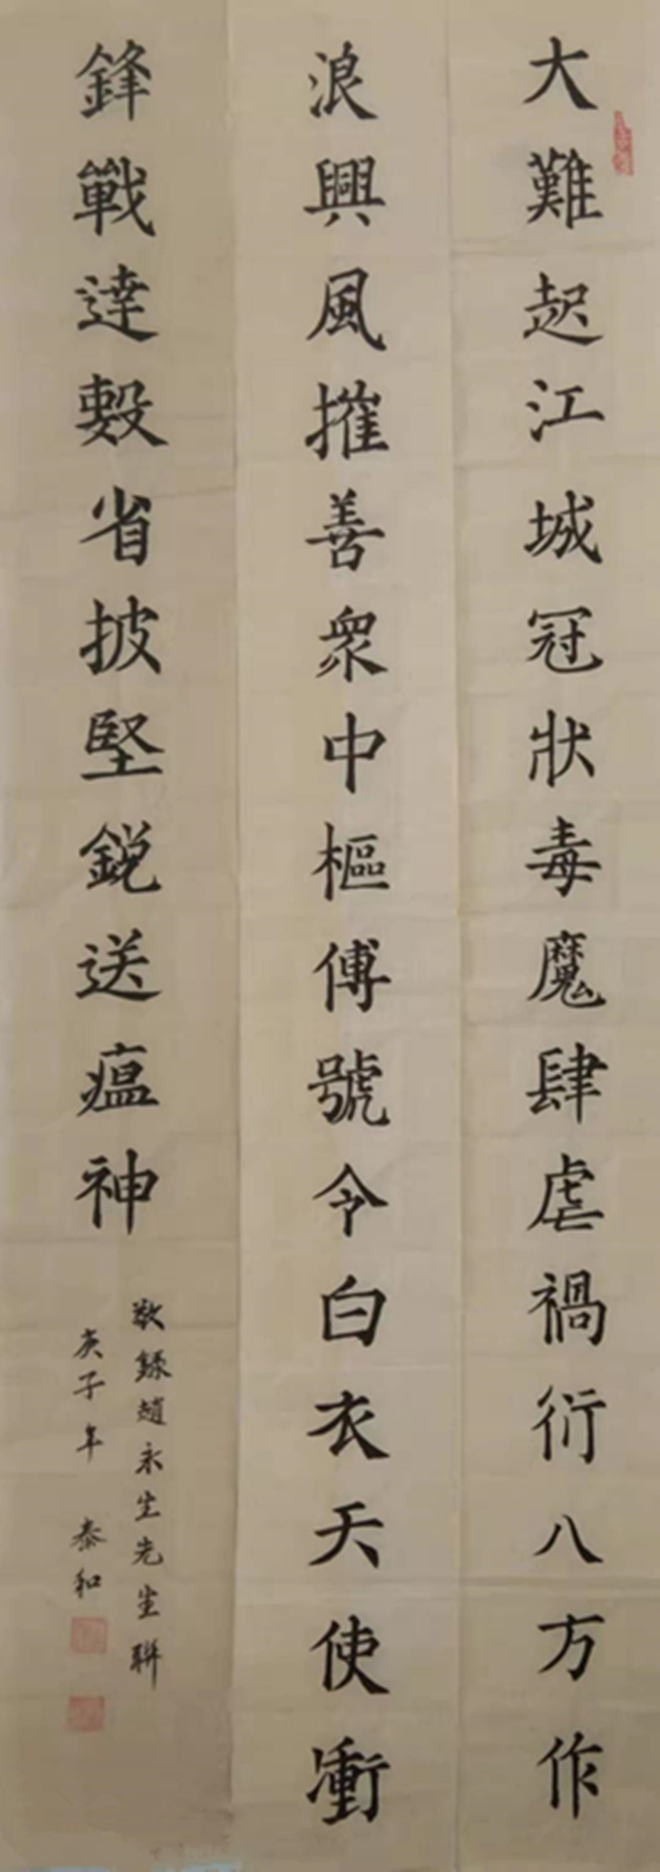 大難起江城冠狀毒魔肆虐禍衍八方作
浪興風摧善衆中樞傳號令白衣天使衝
鋒戰達數省披堅銳送瘟神
敬錄趙永生先生聯
庚子年 泰和